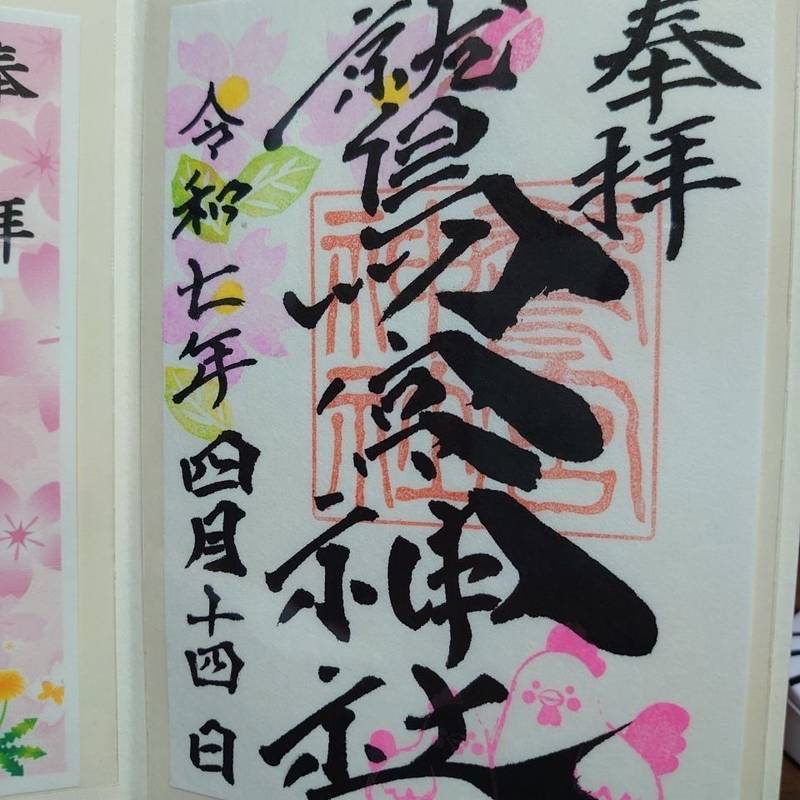 奉拝
鷲宮神社
鷲宮
神社
令和七年四月十四日
奉拝